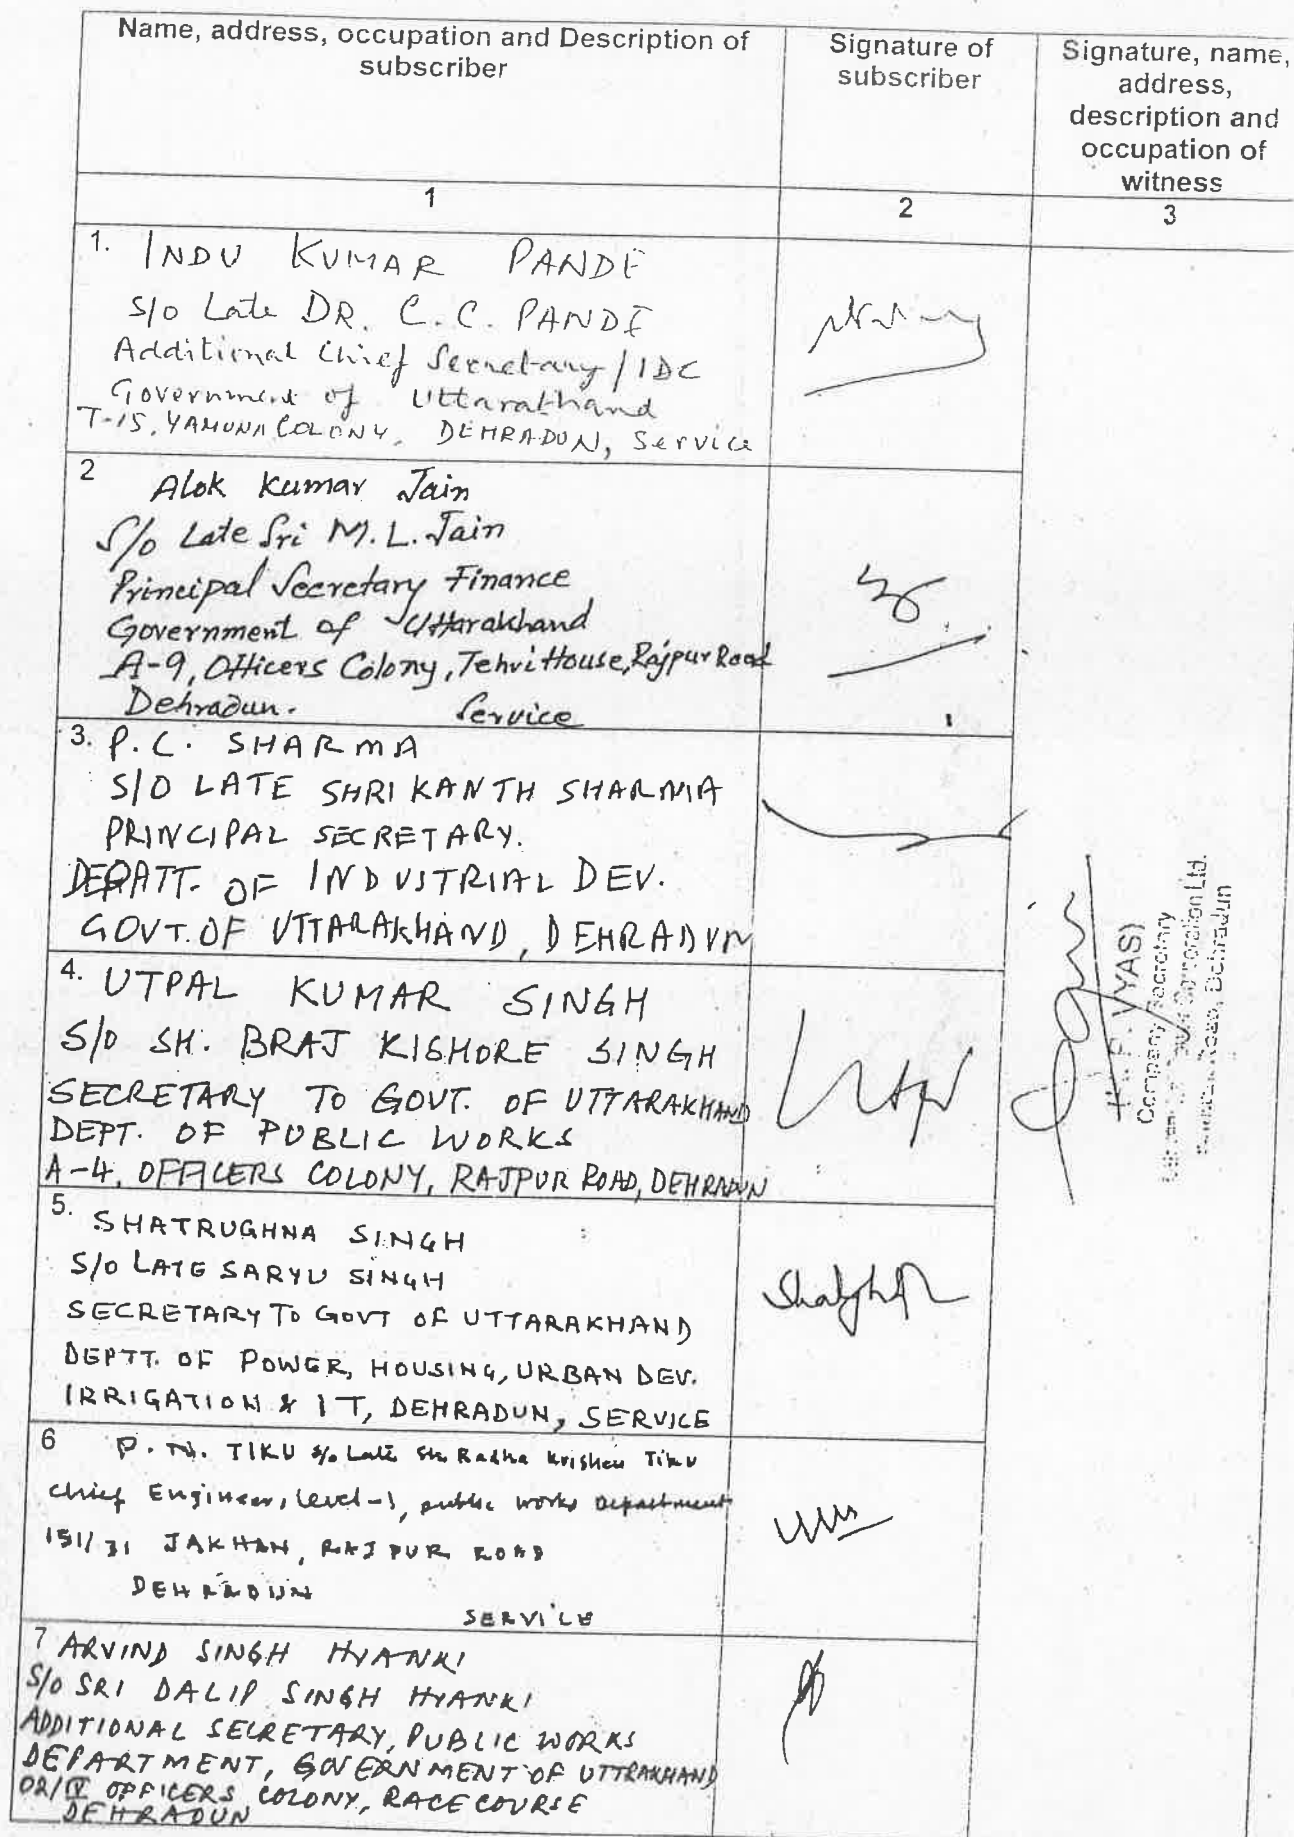 Name, address, occupation and Description of subscriber
Signature of subscriber
Signature, name, address, description and occupation of witness
1
2
3
1. INDU KUMAR PANDE
S/o Late DR. C.C. PANDE
Additional Chief Secretary / IDC
Government of Uttarakhand
T-15, YAMUNA COLONY, DEHRADUN, Service
2 Alok Kumar Jain
S/o Late Sri M.L. Jain
Principal Secretary Finance
Government of Uttarakhand
A-9, Officers Colony, Tehri House, Rajpur Road
Dehradun. Service
3. P.C. SHARMA
S/O LATE SHRI KANTH SHARMA
PRINCIPAL SECRETARY.
DEPATT. OF INDUSTRIAL DEV.
GOVT. OF UTTARAKHAND, DEHRADUN
4. UTPAL KUMAR SINGH
S/O SH. BRAJ KISHORE SINGH
SECRETARY TO GOVT. OF UTTARAKHAND
DEPT. OF PUBLIC WORKS
A-4, OFFICERS COLONY, RAJPUR ROAD, DEHRADUN
5. SHATRUGHNA SINGH
S/O LATE SARYU SINGH
SECRETARY TO GOVT OF UTTARAKHAND
DEPTT. OF POWER, HOUSING, URBAN DEV.
IRRIGATION & IT, DEHRADUN, SERVICE
6 P.N. TIKU S/o Late Sh. Radha Krishen Tiku
Chief Engineer, Level-1, public works Department
151/31 JAKHAN, RAJPUR ROAD
DEHRADUN
SERVICE
7 ARVIND SINGH HYANKI
S/O SRI DALIP SINGH HYANKI
ADDITIONAL SECRETARY, PUBLIC WORKS
DEPARTMENT, GOVERNMENT OF UTTRAKHAND
02/IV OFFICERS COLONY, RACE COURSE
DEHRADUN
VYAS)
Company Secretary
Corporation Ltd.
Road, Dehradun